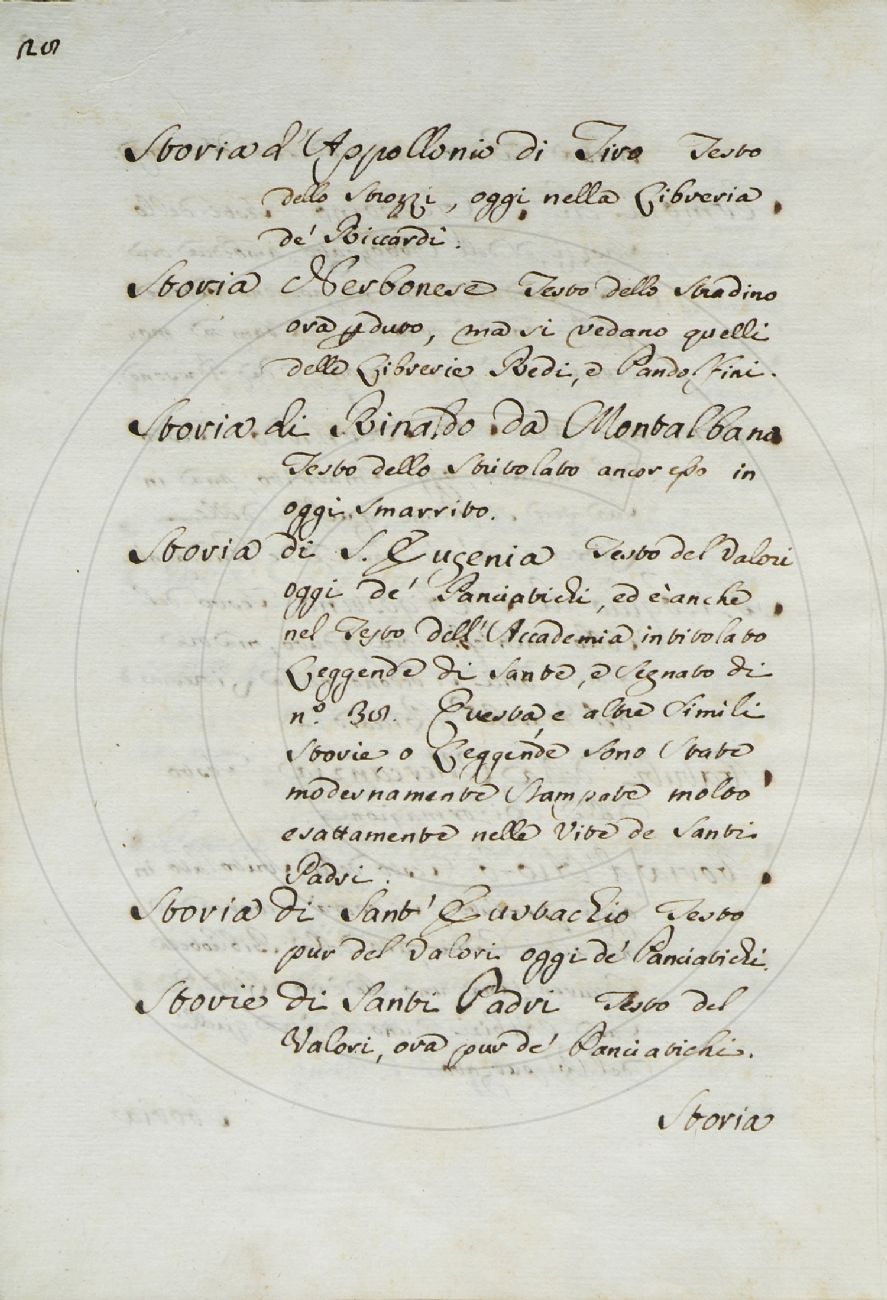 128
Storia d'Appollonio di Tiro Testo
dello Strozzi, oggi nella Libreria
de' Riccardi.
Storia Nerbonese Testo dello Stradino
ora pduto, ma si vedano quelli
delle Librerie Redi, e Pandolfini.
Storia di Rinaldo da Montalbano
Testo dello Stritolato ancor esso in
oggi Smarrito.
Storia di S. Eugenia Testo del Valori
oggi de' Panciatichi, ed è anche
nel Testo dell'Accademia intitolato
Leggende di Sante, e Segnato di
n.° 38. Questa, e altre Simili
Storie, o Leggende sono State
modernamente Stampate molto
esattamente nelle Vite de Santi
Padri.
Storia di Sant' Eustachio Testo
pur del Valori oggi de' Panciatichi.
Storie di Santi Padri Testo del
Valori, ora pur de' Panciatichi.
Storia